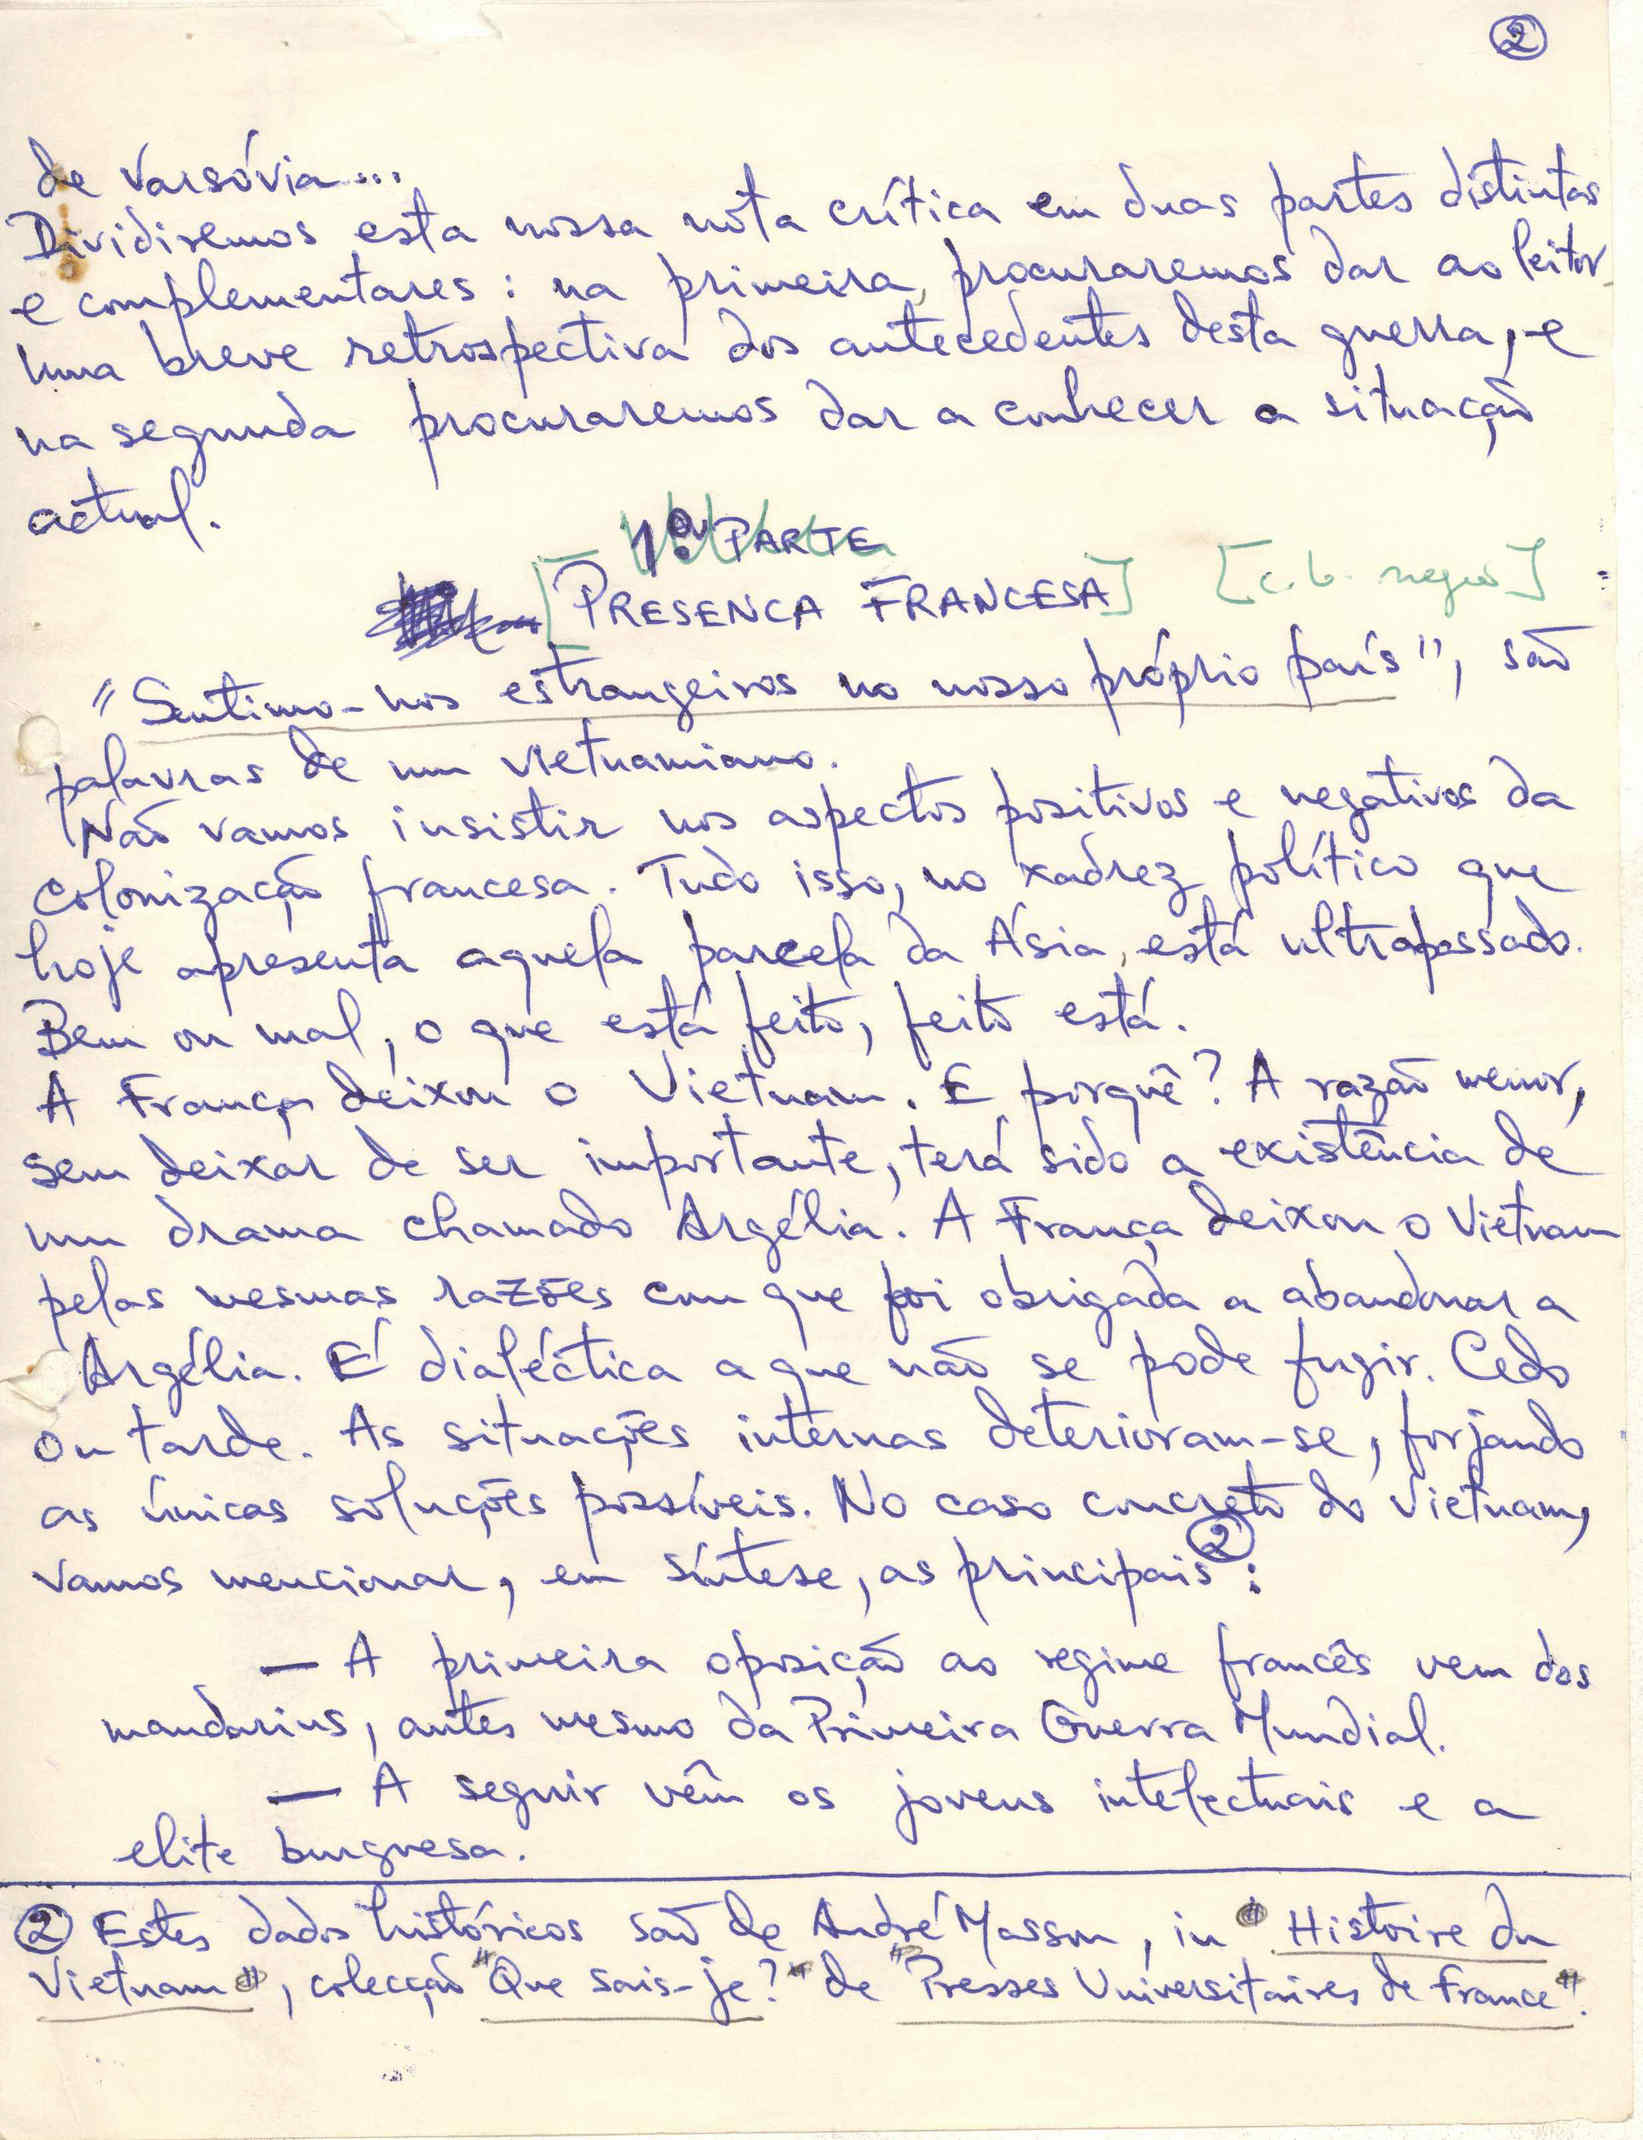 2
de Varsóvia...
Dividiremos esta nossa nota crítica em duas partes distintas
e complementares: na primeira, procuraremos dar ao leitor
uma breve retrospectiva dos antecedentes desta guerra, e
na segunda procuraremos dar a conhecer a situação
actual.
1ª PARTE
[PRESENÇA FRANCESA] [c. b. negro]
"Sentimo-nos estrangeiros no nosso próprio país", são
palavras de um vietnamiano.
Não vamos insistir nos aspectos positivos e negativos da
colonização francesa. Tudo isso, no xadrez político que
hoje apresenta aquela parcela da Ásia, está ultrapassado.
Bem ou mal, o que está feito, feito está.
A França deixou o Vietnam. E porquê? A razão menor,
sem deixar de ser importante, terá sido a existência de
um drama chamado Argélia. A França deixou o Vietnam
pelas mesmas razões com que foi obrigada a abandonar a
Argélia. É dialéctica a que não se pode fugir. Cedo
ou tarde. As situações internas deterioram-se, forjando
as únicas soluções possíveis. No caso concreto do Vietnam,
vamos mencionar, em síntese, as principais 2:
— A primeira oposição ao regime francês vem dos
mandarins, antes mesmo da Primeira Guerra Mundial.
— A seguir vêm os jovens intelectuais e a
elite burguesa.
2 Estes dados históricos são de André Masson, in "Histoire du
Vietnam", colecção "Que sais-je?" de "Presses Universitaires de France".